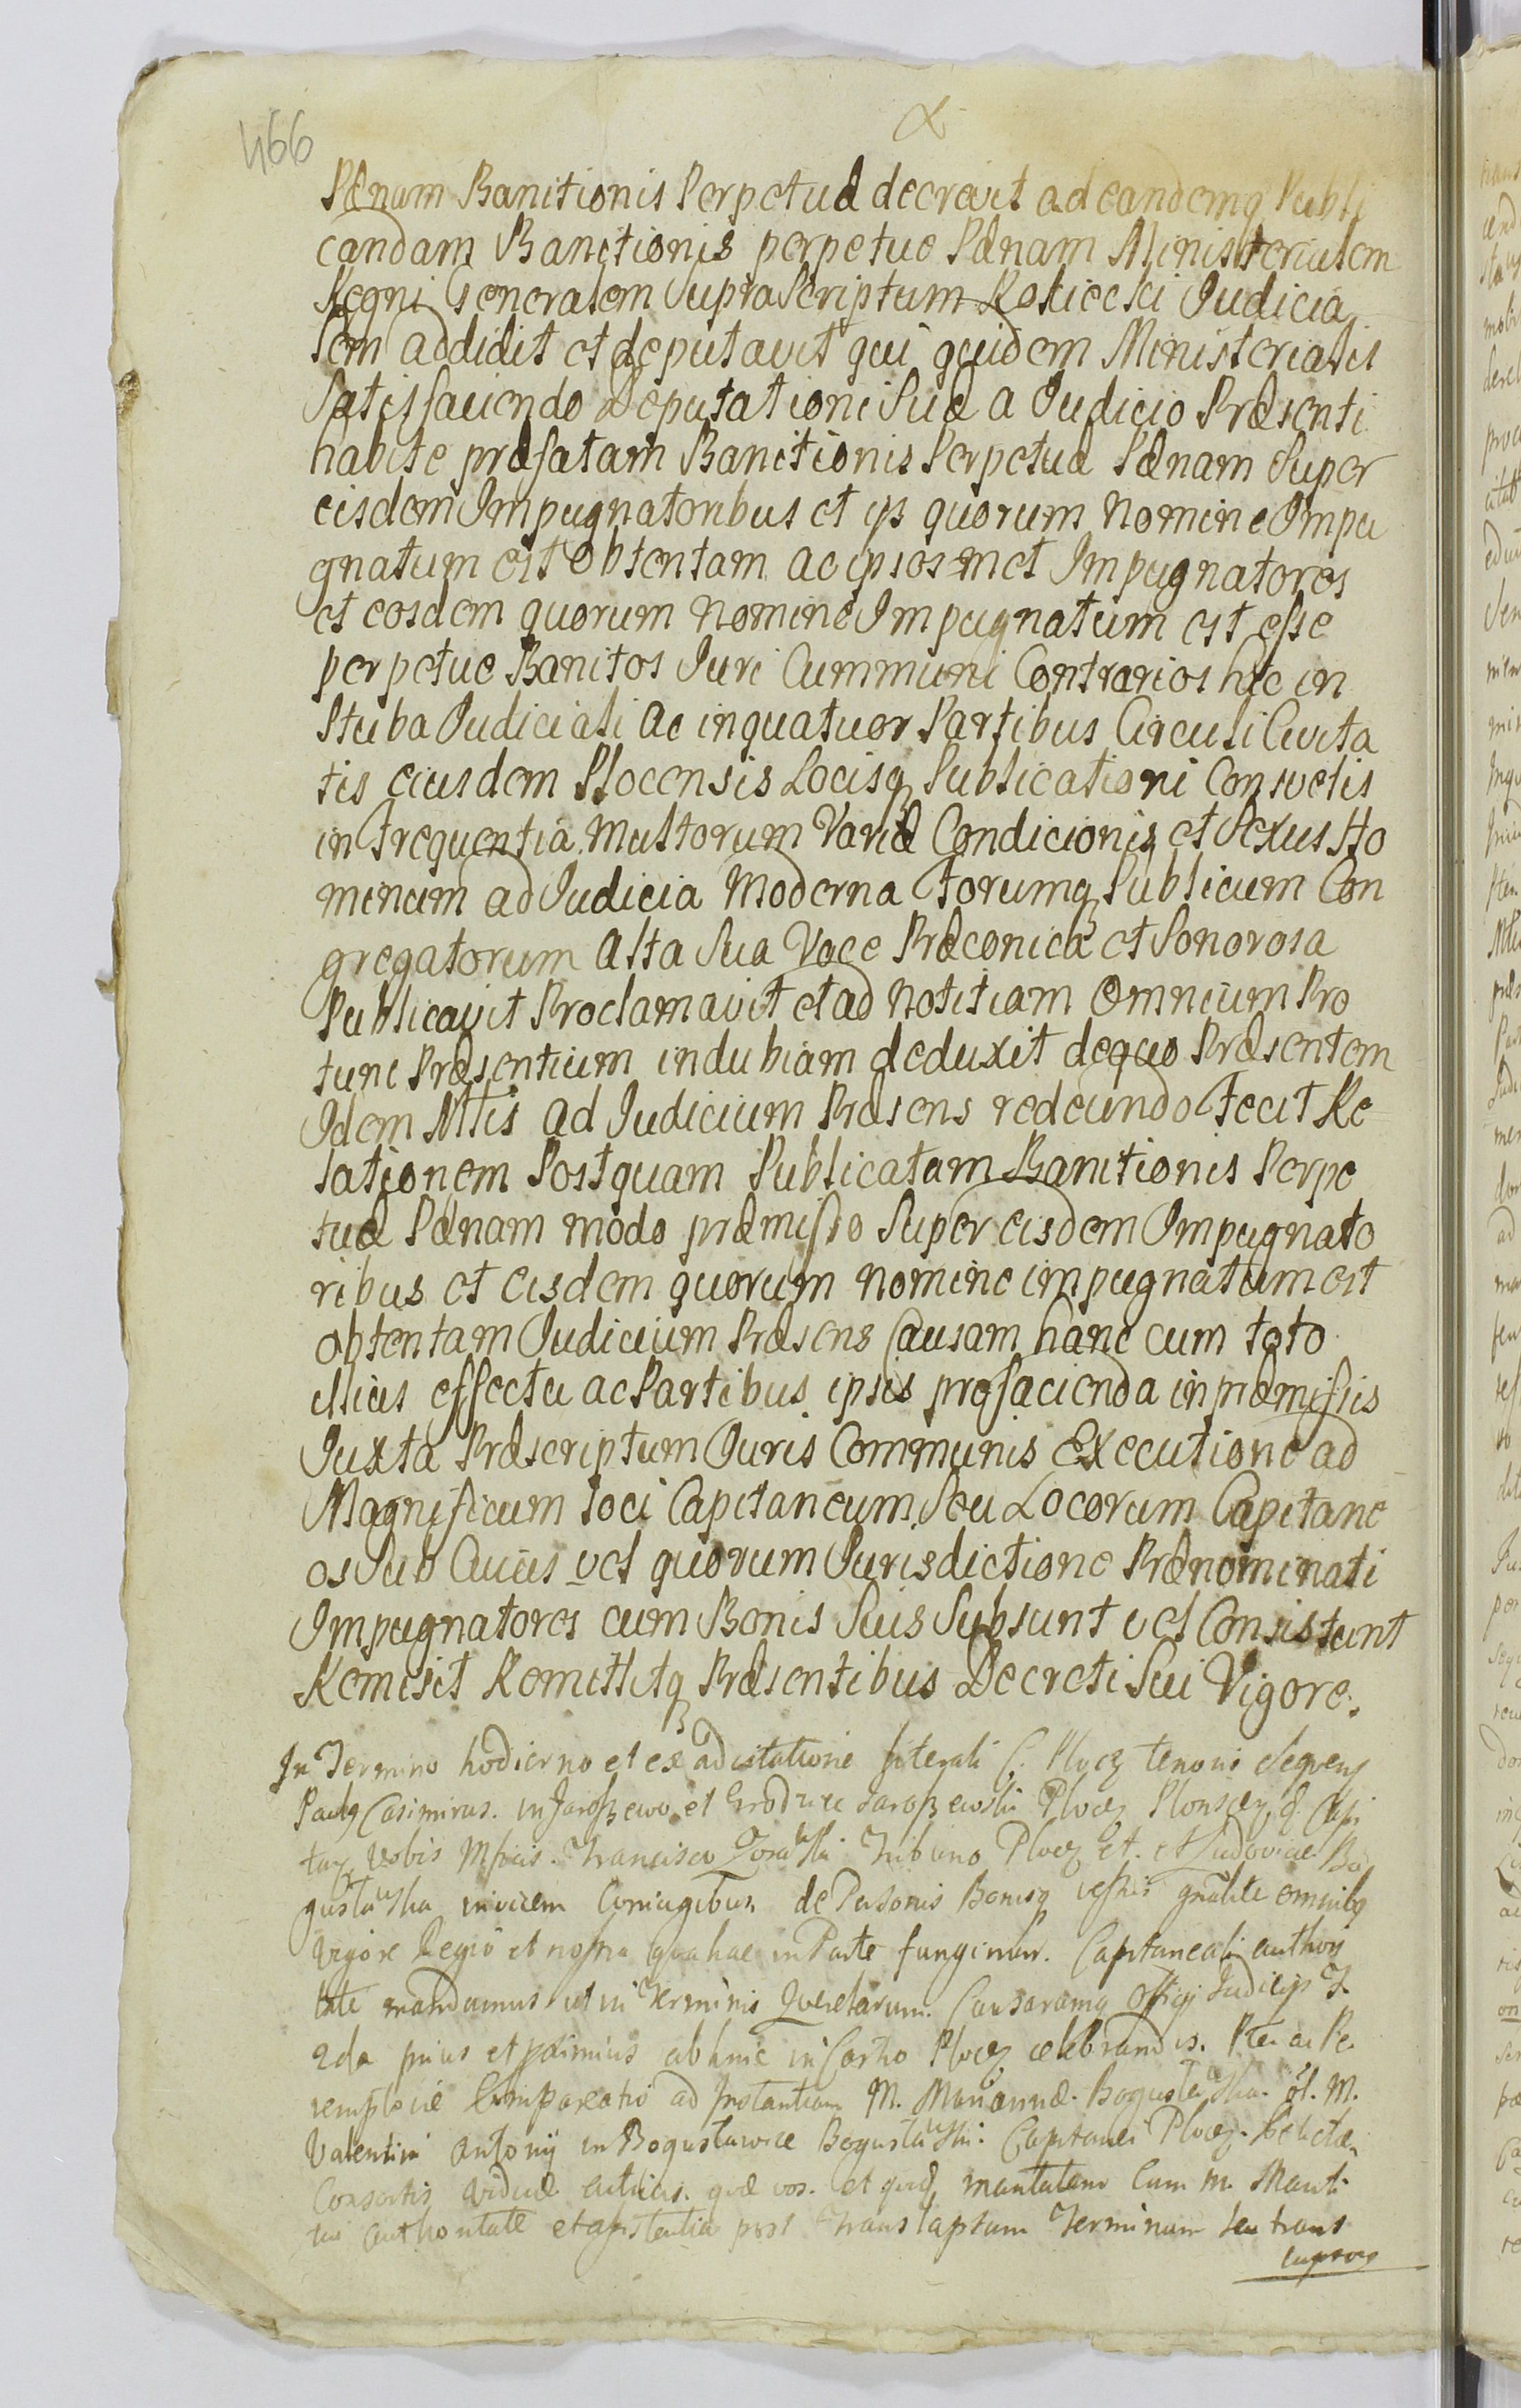 466
Pænam Banitionis Perpetuæ decrevit ad eandemq Publi
candam Banitionis perpetue Pænam Ministerialem
Regni Generalem Suprascriptum Rokicki Judicia
lem addidit et deputavit qui quidem Ministerialis
Satisfaciendo Deputationi Suæ a Judicio Præsenti
habite præfatam Banitionis Perpetuæ Pænam Super
eisdem Impugnatoribus et ijs quorum Nomine Impu
gnatum est obtentam ac ipsosmet Impugnatores
et eosdem quorum Nomine Impugnatum est esse
perpetue Banitos Juri Cummuni Contrarios hic in
Stuba Judiciali ac in quatuor Partibus Circuli Civita
tis eiusdem Plocensis Locisq Publicationi Consvetis
in frequentia Multorum Variæ Condicionis et Sexus Ho
minum ad Judicia Moderna Forumq Publicum Con
gregatorum alta Sua Voce Præconica et Sonorosa
Publicavit Proclamavit et ad Notitiam Omnium Pro
tunc Præsentium indubiam deduxit de quo Præsentem
Idem Mtlis ad Judicium Præsens redeundo Fecit Re
lationem Postquam Publicatam Banitionis Perpe
tuæ Pænam modo præmisso Super eisdem Impugnato
ribus et eisdem quorum nomine impugnatum est
obtentam Judicium Præsens Causam hanc cum toto
illius effectu ac Partibus ipsis pro facienda in præmissis
Juxta Præscriptum Juris Communis Executione ad
Magnificum loci Capitaneum Seu Locorum Capitane
os Sub Cuius vel quorum Jurisdictione Prænominati
Impugnatores cum Bonis Suis Subsunt vel Consistunt
Remisit Remittitq Præsentibus Decreti Sui Vigore.
In Termino hodierno et ex ad citatione literali C. Plocz tenoris Sequens
Paulq Casimirus in Jaroszewo et Grodziec Jaroszewski Plocz Plonscz q Capi
taz Vobis Mficis Francisco Tribuno Plocz Et. et Ludovicæ Bo
gusławska invicem Coniugibus de Personis Bonisq vestris gnalite omnibq
Vigore Regia et nostra qua hac in Parte fungimur Capitaneali authori
tate mandamus ut in Terminis Querelarum Causarumq Officij Judicijs F.
2da prius et proximius ab hinc in Castro Plocz celebrandis
remptorie Compareatis ad Instantiam M. Mariannæ Bogusławska ol. M.
Valentini Antonij in Bogusławice Bogusławski Capitanei Plocz Relictæ
Consortis Viduæ Actricis quæ vos
authoritate et assistentia post Translapsum Terminum seu trans
lapsos